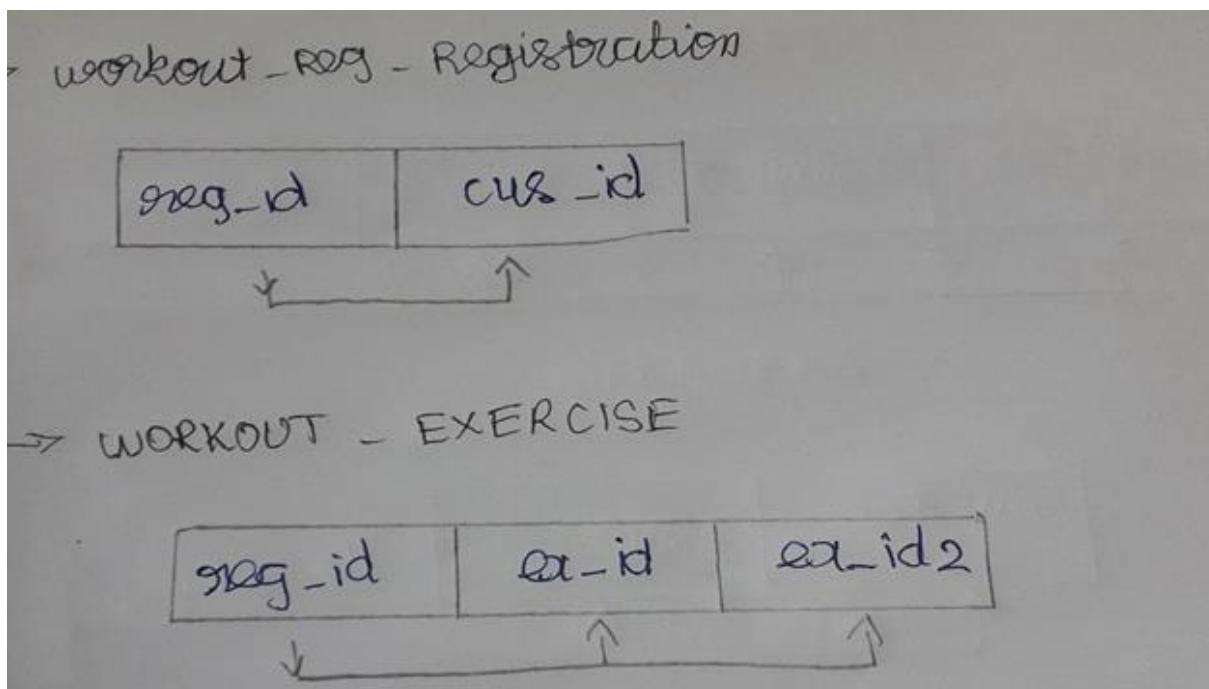 → workout-Reg-Registration
reg-id cus-id
→ WORKOUT - EXERCISE
reg-id ex-id ex-id2